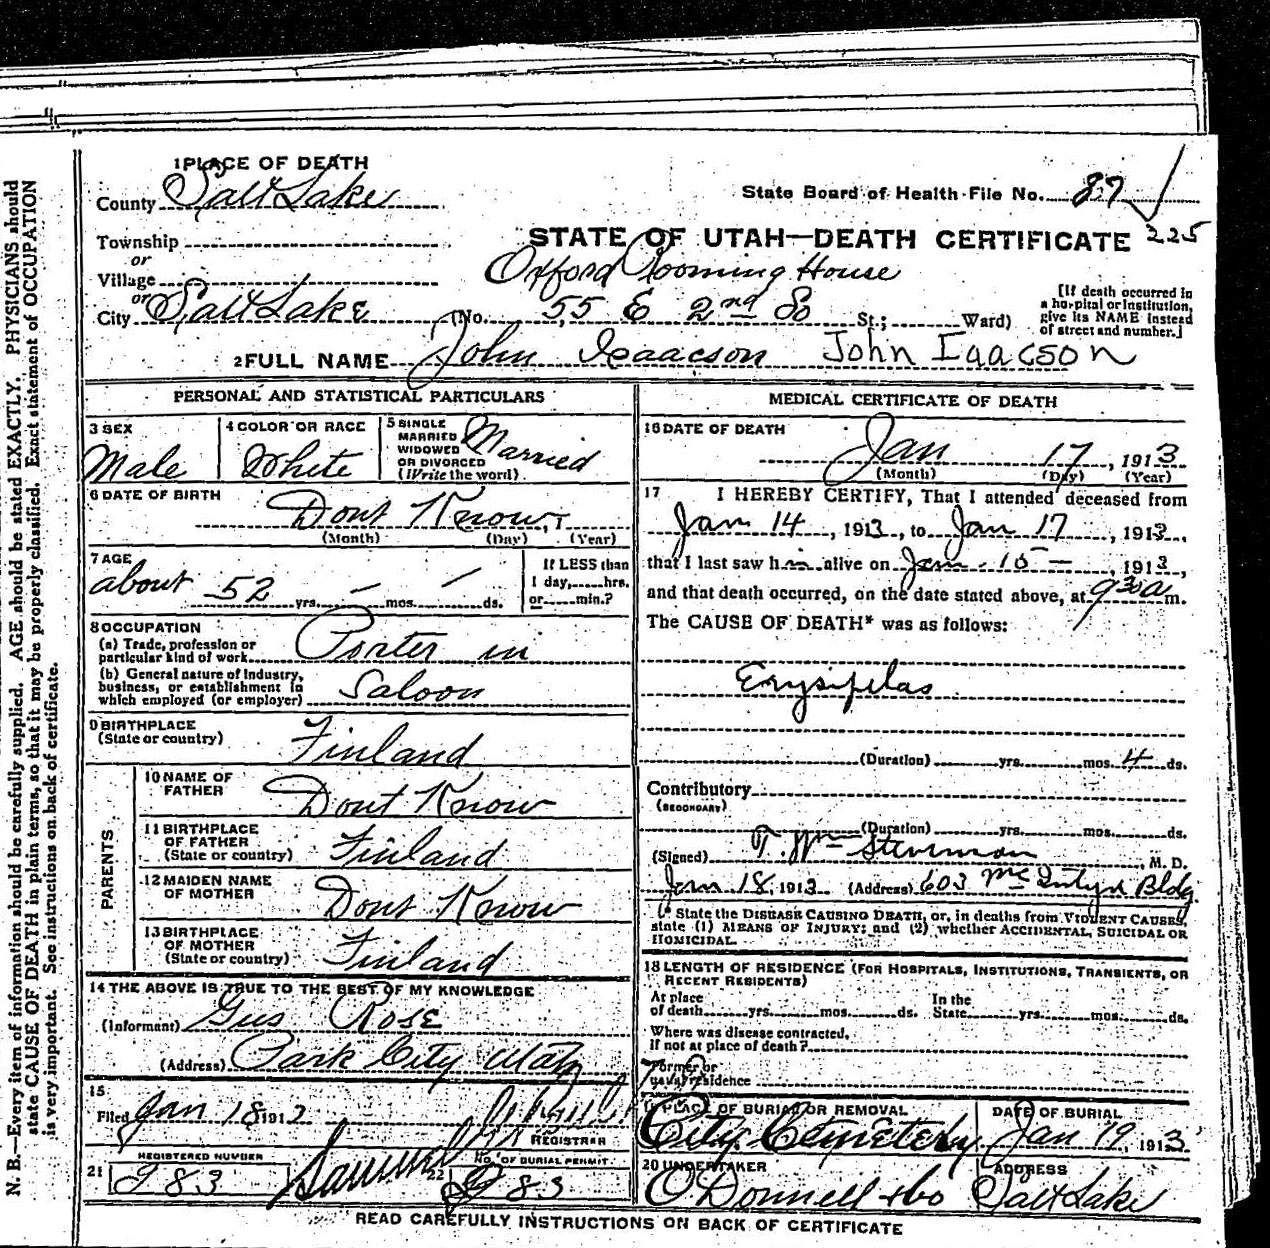 1 PLACE OF DEATH
County Salt Lake
State Board of Health File No. 87
Township
STATE OF UTAH—DEATH CERTIFICATE 225
or
Village
Oxford Rooming House
or
City Salt Lake (No. 55 E 2nd So St.; Ward)
[If death occurred in a hospital or institution, give its NAME instead of street and number.]
2 FULL NAME John Isaacson John Iaacson
PERSONAL AND STATISTICAL PARTICULARS
3 SEX
Male
4 COLOR OR RACE
White
5 SINGLE
MARRIED
WIDOWED
OR DIVORCED
(Write the word)
Married
6 DATE OF BIRTH
Dont Know
(Month) (Day) (Year)
7 AGE
about 52 yrs. — mos. — ds.
If LESS than
1 day, hrs.
or min.?
8 OCCUPATION
(a) Trade, profession or
particular kind of work Porter in
(b) General nature of Industry,
business, or establishment in
which employed (or employer) Saloon
9 BIRTHPLACE
(State or country) Finland
PARENTS
10 NAME OF
FATHER Dont Know
11 BIRTHPLACE
OF FATHER
(State or country) Finland
12 MAIDEN NAME
OF MOTHER Dont Know
13 BIRTHPLACE
OF MOTHER
(State or country) Finland
14 THE ABOVE IS TRUE TO THE BEST OF MY KNOWLEDGE
(Informant) Gus Rose
(Address) Park City Utah
15
Filed Jan 18 191
REGISTRAR
REGISTERED NUMBER
21 983
22 NO. OF BURIAL PERMIT
983
MEDICAL CERTIFICATE OF DEATH
16 DATE OF DEATH
Jan 17, 1913
(Month) (Day) (Year)
17 I HEREBY CERTIFY, That I attended deceased from
Jan 14, 1913, to Jan 17 1913,
that I last saw him alive on Jan. 15 — 1913,
and that death occurred, on the date stated above, at 9 30 a m.
The CAUSE OF DEATH* was as follows:
Erysipelas
(Duration) yrs. mos. 4 ds.
Contributory
(SECONDARY)
(Duration) yrs. mos. ds.
(Signed) T. Wm Stevenson, M. D.
Jan 18, 1913 (Address) 603 McIntyre Bldg.
[* State the DISEASE CAUSING DEATH, or, in deaths from VIOLENT CAUSES,
state (1) MEANS OF INJURY; and (2) whether ACCIDENTAL, SUICIDAL OR
HOMICIDAL.
18 LENGTH OF RESIDENCE (FOR HOSPITALS, INSTITUTIONS, TRANSIENTS, OR
RECENT RESIDENTS)
At place
of death yrs. mos. ds.
In the
State yrs. mos. ds.
Where was disease contracted,
if not at place of death?
Former or
usual residence
19 PLACE OF BURIAL OR REMOVAL
City Cemetery
DATE OF BURIAL
Jan 19, 1913
20 UNDERTAKER
O'Donnell & Co
ADDRESS
Salt Lake
READ CAREFULLY INSTRUCTIONS ON BACK OF CERTIFICATE
N. B.—Every item of information should be carefully supplied. AGE should be stated EXACTLY. PHYSICIANS should
state CAUSE OF DEATH in plain terms, so that it may be properly classified. Exact statement of OCCUPATION
is very important. See instructions on back of certificate.